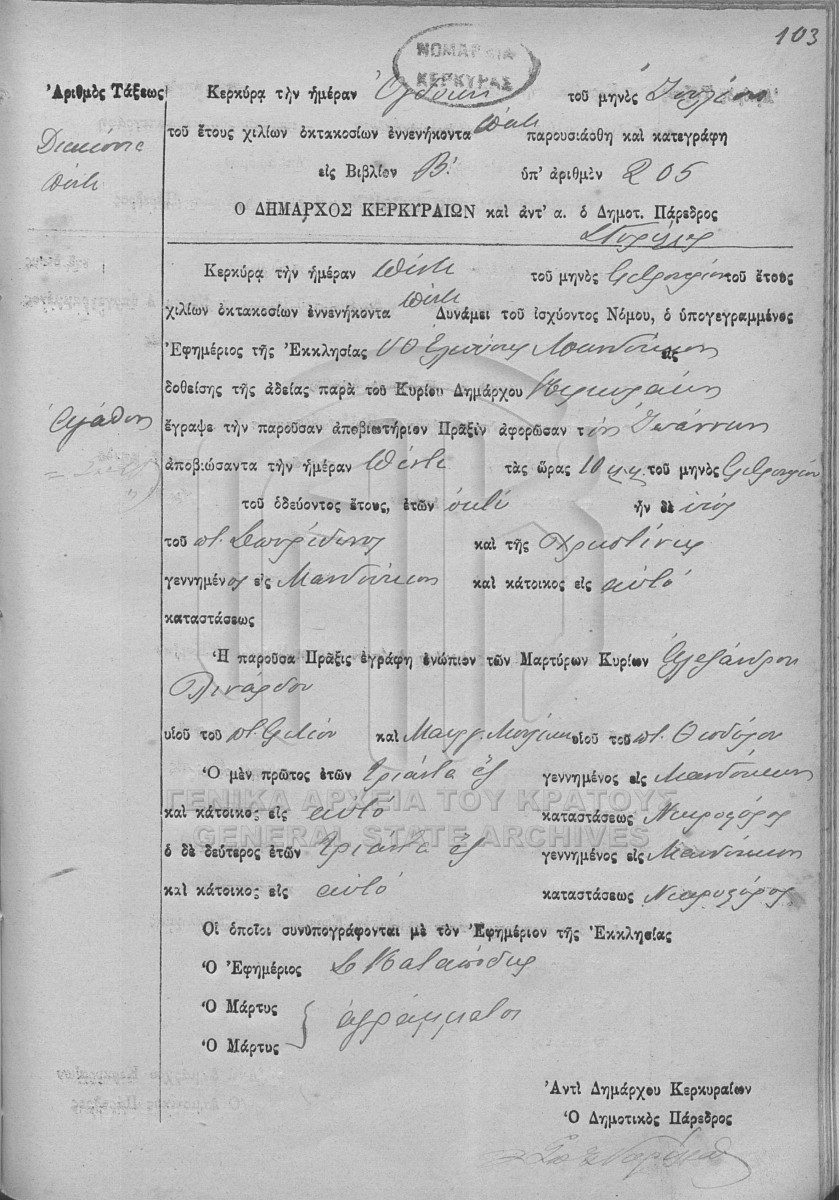 103
ΝΟΜΑΡΧΙΑ
ΚΕΡΚΥΡΑΣ
Ἀριθμὸς Τάξεως
Διακόσια
πέντε
Κερκύρᾳ τὴν ἡμέραν Ὀγδόην τοῦ μηνὸς Ἰουλίου
τοῦ ἔτους χιλίων ὀκτακοσίων ἐννενήκοντα πέντε παρουσιάσθη καὶ κατεγράφη
εἰς Βιβλίον Β! ὑπ' ἀριθμὸν 205
Ο ΔΗΜΑΡΧΟΣ ΚΕΡΚΥΡΑΙΩΝ καὶ ἀντ' α. ὁ Δημοτ. Πάρεδρος
Κερκύρᾳ τὴν ἡμέραν πέντε τοῦ μηνὸς τοῦ ἔτους
χιλίων ὀκτακοσίων ἐννενήκοντα πέντε Δυνάμει τοῦ ἰσχύοντος Νόμου, ὁ ὑπογεγραμμένος
Ἐφημέριος τῆς Ἐκκλησίας Μανδούκιον εἰς
δοθείσης τῆς ἀδείας παρὰ τοῦ Κυρίου Δημάρχου
Ἀγάθης
ἔγραψε τὴν παροῦσαν ἀποβιωτήριον Πρᾶξιν ἀφορῶσαν τὸν Ἰωάννην
ἀποβιώσαντα τὴν ἡμέραν πέντε τὰς ὥρας 10 τοῦ μηνὸς
τοῦ ὁδεύοντος ἔτους, ἐτῶν ὀκτώ ἦν δὲ υἱὸς
τοῦ ποτ. Σπυρίδωνος καὶ τῆς Χριστίνης
γεννημένος εἰς Μανδούκιον καὶ κάτοικος εἰς αὐτό
καταστάσεως
Ἡ παροῦσα Πρᾶξις ἐγράφη ἐνώπιον τῶν Μαρτύρων Κυρίων Ἀλεξάνδρου
Λινάρδου
υἱοῦ τοῦ ποτ. καὶ υἱοῦ τοῦ ποτ. Θεοδώρου
Ὁ μὲν πρῶτος ἐτῶν τριάντα ἕξ γεννημένος εἰς Μανδούκιον
καὶ κάτοικος εἰς αὐτό καταστάσεως Νεκροφόρος
ὁ δὲ δεύτερος ἐτῶν τριάντα ἕξ γεννημένος εἰς Μανδούκιον
καὶ κάτοικος εἰς αὐτό καταστάσεως Νεκροφόρος
Οἱ ὁποῖοι συνυπογράφονται μὲ τὸν Ἐφημέριον τῆς Ἐκκλησίας
Ὁ Ἐφημέριος
Ὁ Μάρτυς ἀγράμματοι
Ὁ Μάρτυς
Ἀντὶ Δημάρχου Κερκυραίων
Ὁ Δημοτικὸς Πάρεδρος
ΓΕΝΙΚΑ ΑΡΧΕΙΑ ΤΟΥ ΚΡΑΤΟΥΣ
GENERAL STATE ARCHIVES